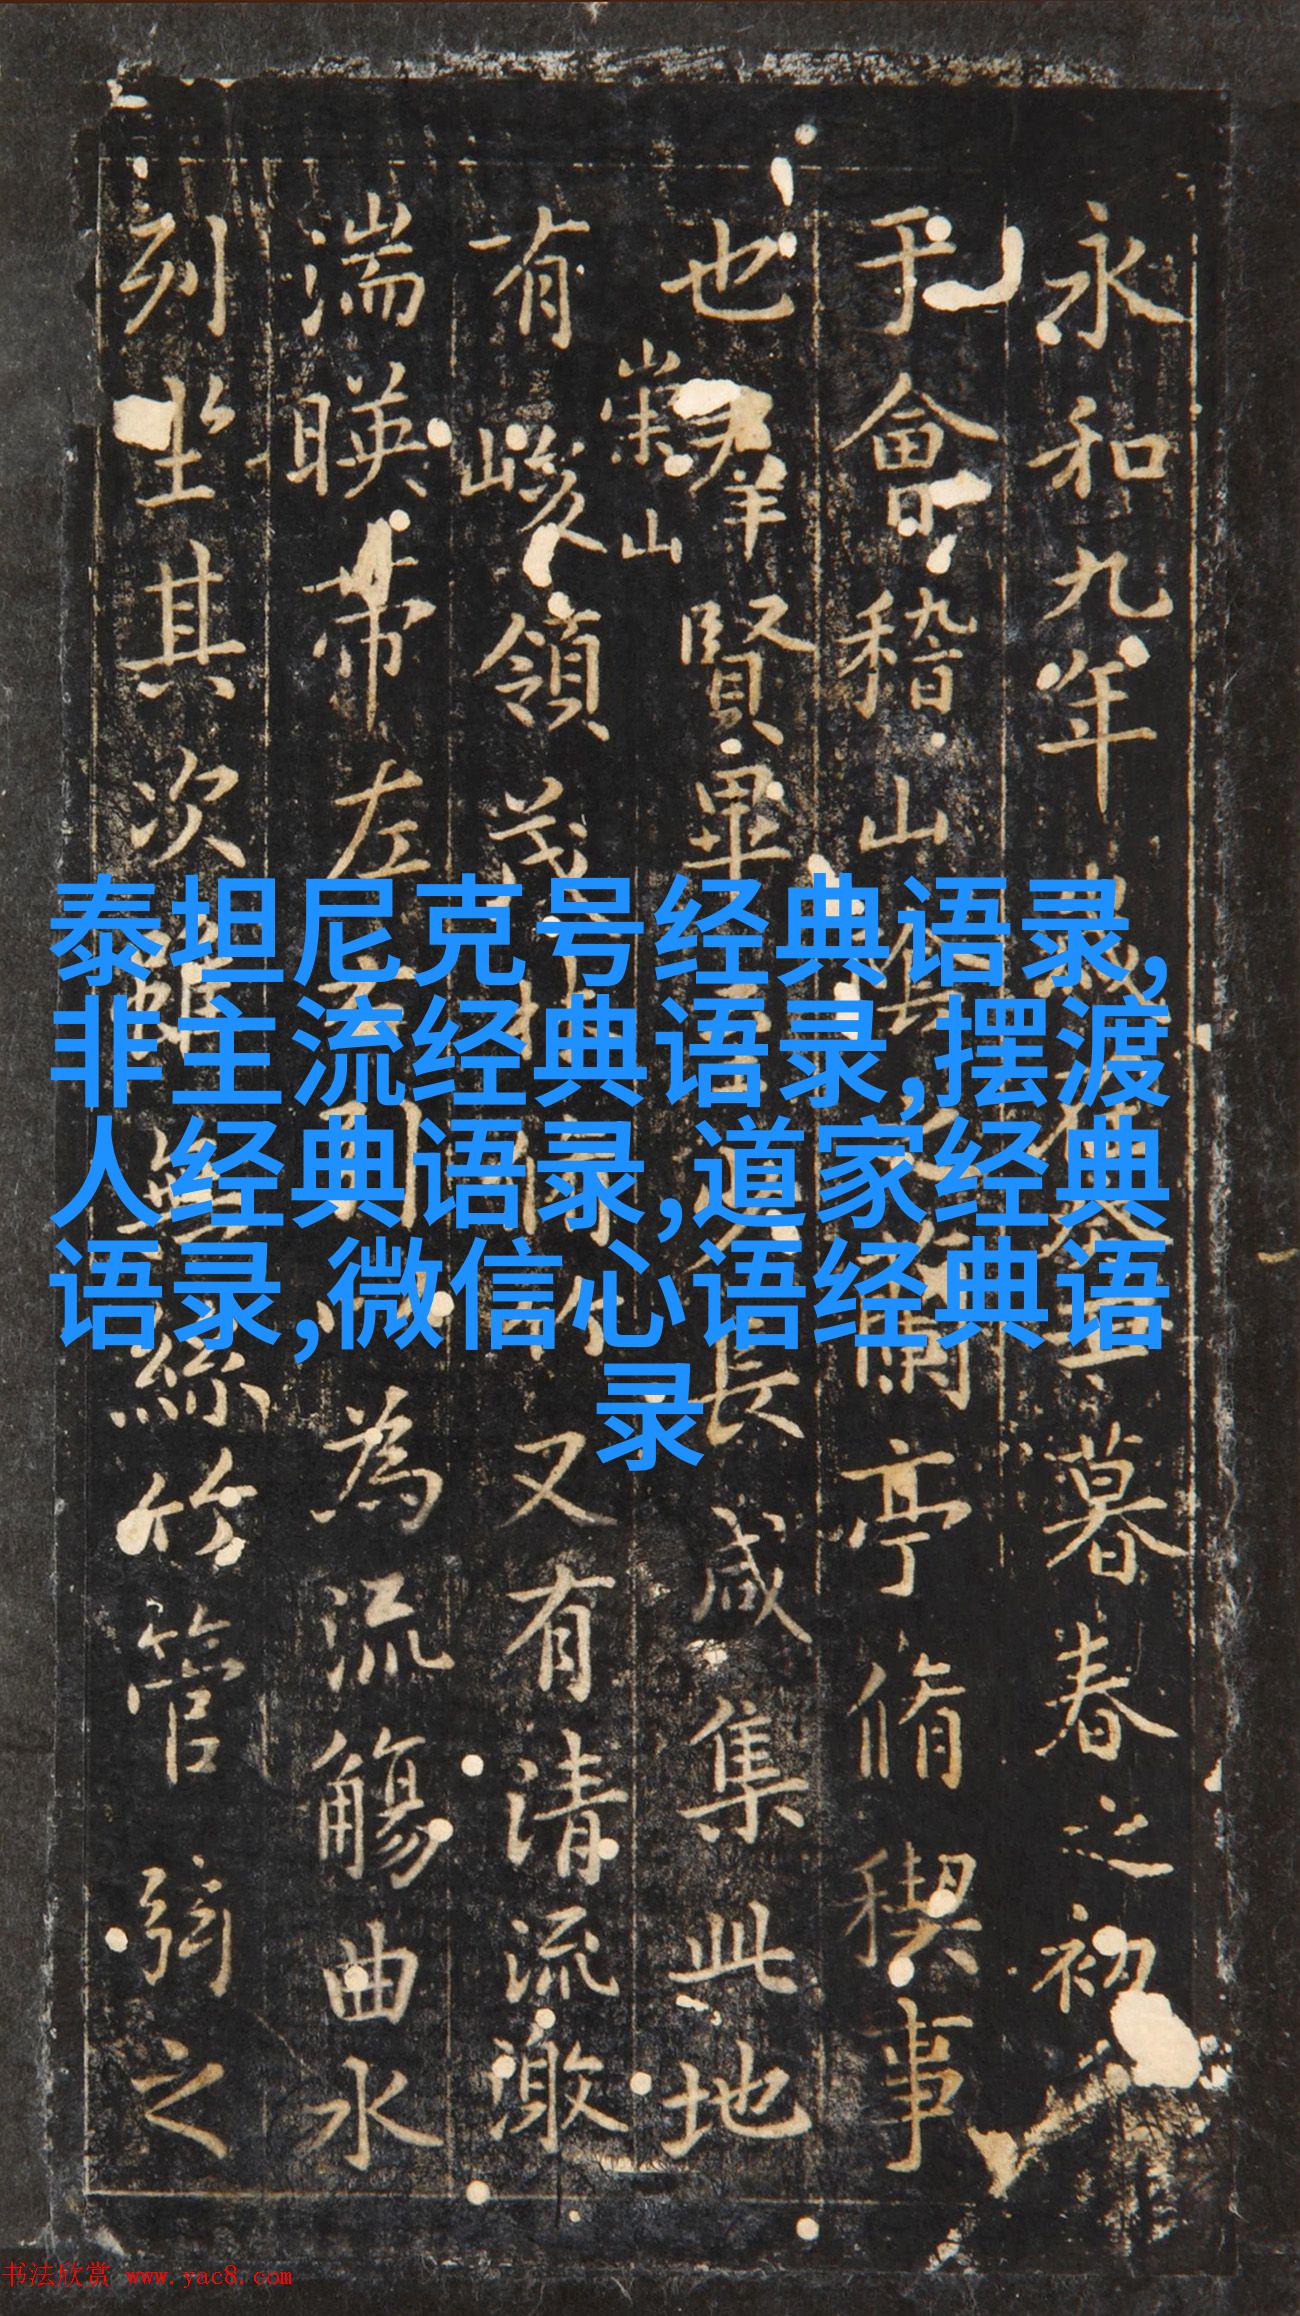 永和九年歲暮春之初
于會稽山陰蘭亭脩稧事
也群賢畢長咸集此地
崇山
有峻領茂林又有清流激
湍暎帶左引為流觴曲水
列坐其次雖無絲竹管弦之
泰坦尼克号经典语录,
非主流经典语录,摆渡
人经典语录,道家经典
语录,微信心语经典语
录
书法欣赏 www.yac8.com